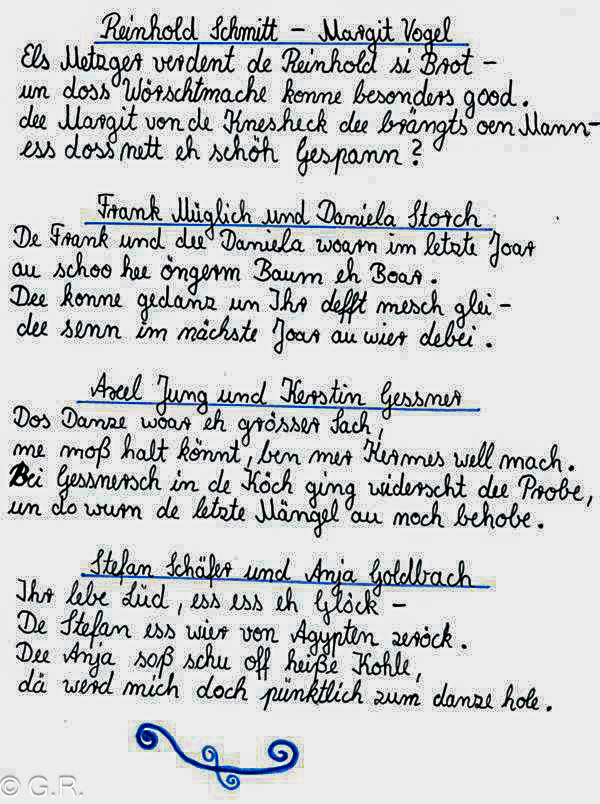 Reinhold Schmitt - Margit Vogel
Els Metzger verdent de Reinhold si Brot -
un doss Wörschtmache konne besonders good.
dee Margit von de Knesheck dee brängts oen Mann-
ess doss nett eh schöh Gespann?
Frank Müglich und Daniela Storch
De Frank und dee Daniela woarn im letzte Joar
au schoo hee öngerm Baum eh Boar.
Dee konne gedanz un Ihr defft mesch glei -
dee senn im nächste Joar au wier debei.
Axel Jung und Kerstin Gessner
Dos Danze woar eh grösser Sach,
me moß halt könnt, ben mer Kermes well mach.
Bei Gessnersch in de Köch ging widerscht dee Probe,
un do wurn de letzte Mängel au noch behobe.
Stefan Schäfer und Anja Goldbach
Ihr lebe Lüd, ess ess eh Glöck -
De Stefan ess wier von Ägypten zeröck.
Dee Anja soß schu off heiße Kohle,
dä werd mich doch pünktlich zum danze hole.
© G.R.